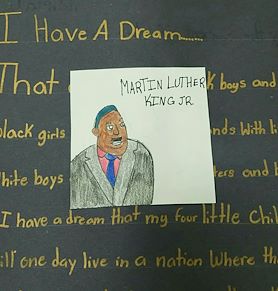 I Have A Dream......
That
MARTIN LUTHER
KING JR
k boys and
black girls
nds with li
White boys
ters and b
I have a dream that my four little Chil
ill one day live in a nation Where th